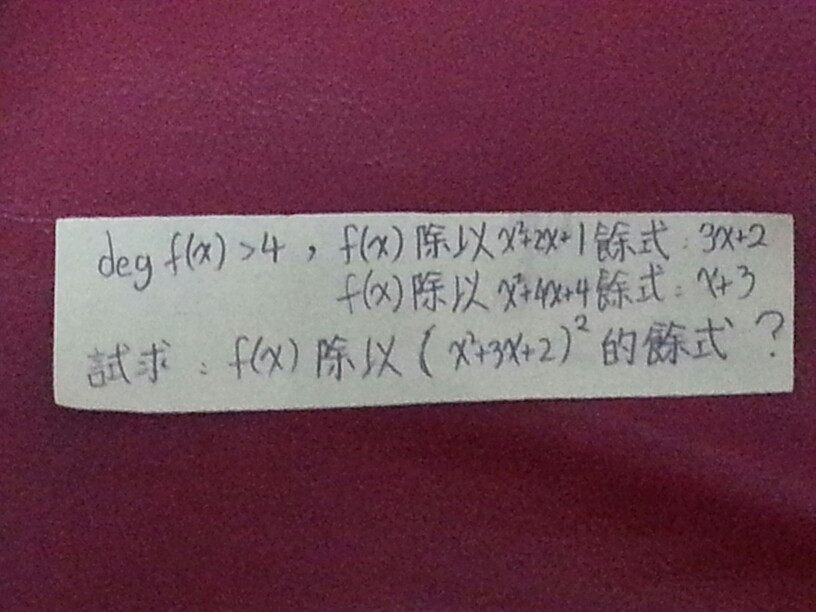 deg f(x) > 4 , f(x) 除以 x²+2x+1 餘式 : 3x+2
f(x) 除以 x²+4x+4 餘式 : x+3
試求 : f(x) 除以 ( x²+3x+2 )² 的餘式 ?